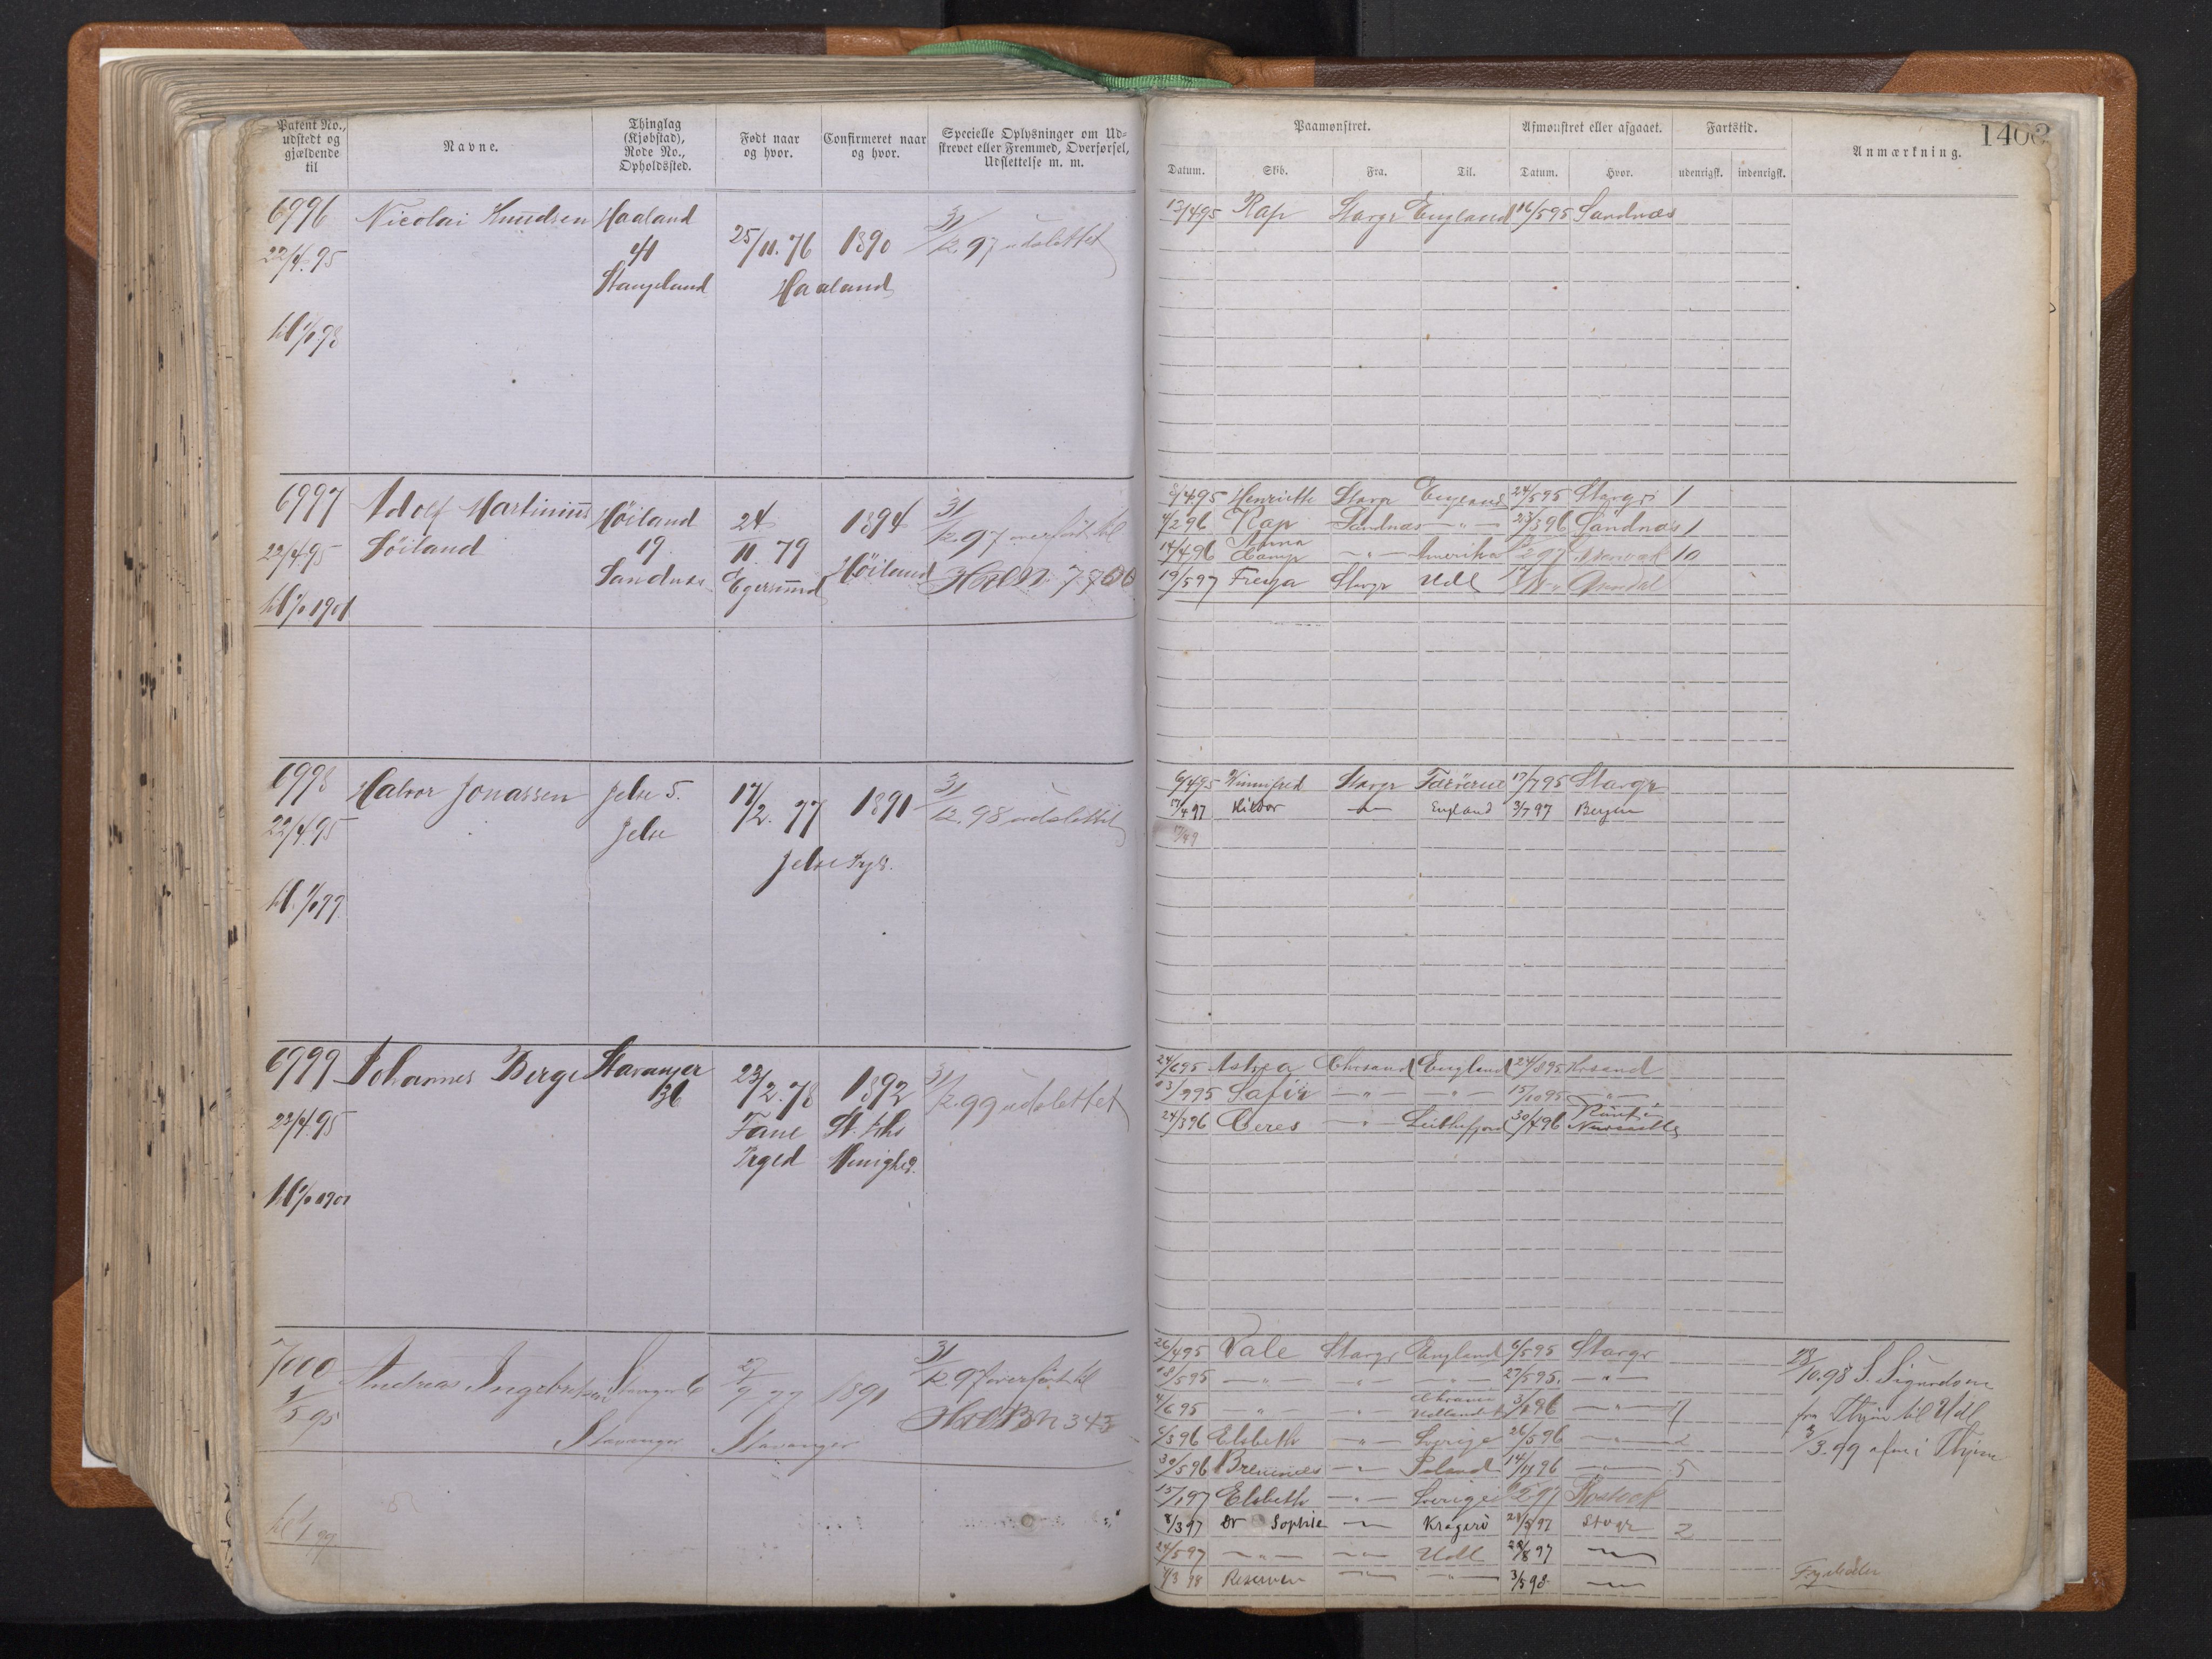 Patent No., udstedt og gjældende til
Navne.
Thinglag (Kjøbstad), Rode No., Opholdssted.
Født naar og hvor.
Confirmeret naar og hvor.
Specielle Oplysninger om Udskrevet eller Fremmed, Overførsel, Udslettelse m. m.
Paamønstret.
Afmønstret eller afgaaet.
Fartstid.
Anmærkning.
1402
Datum. Skib. Fra. Til. Datum. Hvor. udenrigsk. indenrigsk.
6996 Nicolai Knudsen Haaland
22/4.95 41 25/11.76 1890 31/12.97 udslettet
Stangeland Haaland
til 1/1 98
13/4 95 Rap Stavgr England 16/5 95 Sandnæs
6997 Adolf Martinius Høiland 24 1894 31/12.97 overført til
22/4 95 Høiland 19 11.79 Høiland
Sandnæs Egersund
til 1/1 1901
Henriette Stavgr England 24/5 95 Stavgr 1
4/2 96 Rap Sandnæs — " — 23/3 96 Sandnæs 1
14/4 96 Anna Camp — " — Amerika 10
19/5 97 Freya Stavgr Udl Arendal
6998 Halvor Jonassen Jelse 5. 17/2.77 1891 31/12.98 udslettet
22/4.95 Jelse
Jelse Prgs.
til 1/1 99
6/4 95 Winnifred Stavgr 17/7 95 Stavgr
17/4 97 — " — England 3/7 97 Bergen
6999 Johannes Berge Stavanger 23/2.78 1892 31/12.99 udslettet
36
23/4.95 Fane St. Phs
Prgld Menighed.
til 1/1 1901
24/6 95 Astrea Chrsand England 24/8 95 Krsand
13/9 95 Safir — " — — " — 15/10 95 — " —
24/3 96 Ceres — " — 30/4 96
7000 Andreas Ingebretsen Stavanger 6 27/9 77 1891 31/12 97 overført til
1/5 95 343
Stavanger Stavanger
til 1/1 99
26/4 95 Vale Stavgr England 6/5 95 Stavgr
18/5 95 — " — — " — — " — 27/5 95. — " —
4/6 95 — " — — " — Udlandet — " — 7
Elsbeth — " — Sverige 26/5 96 — " — 2
30/5 96 — " — Island 14/11 96 — " — 5
15/1 97 Elsbeth — " — Sverige Rostock
8/3 97 Dr Sophie — " — Kragerø 21/5 97 Stvgr 2
24/5 97 — " — — " — Udl 28/8 97 — " —
Reserven — " — — " — 3/5 98 — " —
28/10.98 S. Sigurdson
fra Thjem til Udl
3/3.99 afm i Thjem